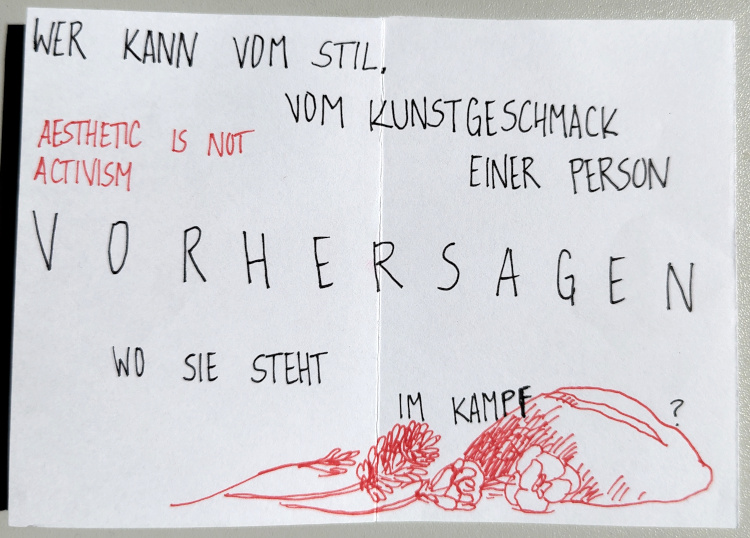 WER KANN VOM STIL,
VOM KUNSTGESCHMACK
EINER PERSON
AESTHETIC IS NOT
ACTIVISM
VORHERSAGEN
WO SIE STEHT
IM KAMPF ?